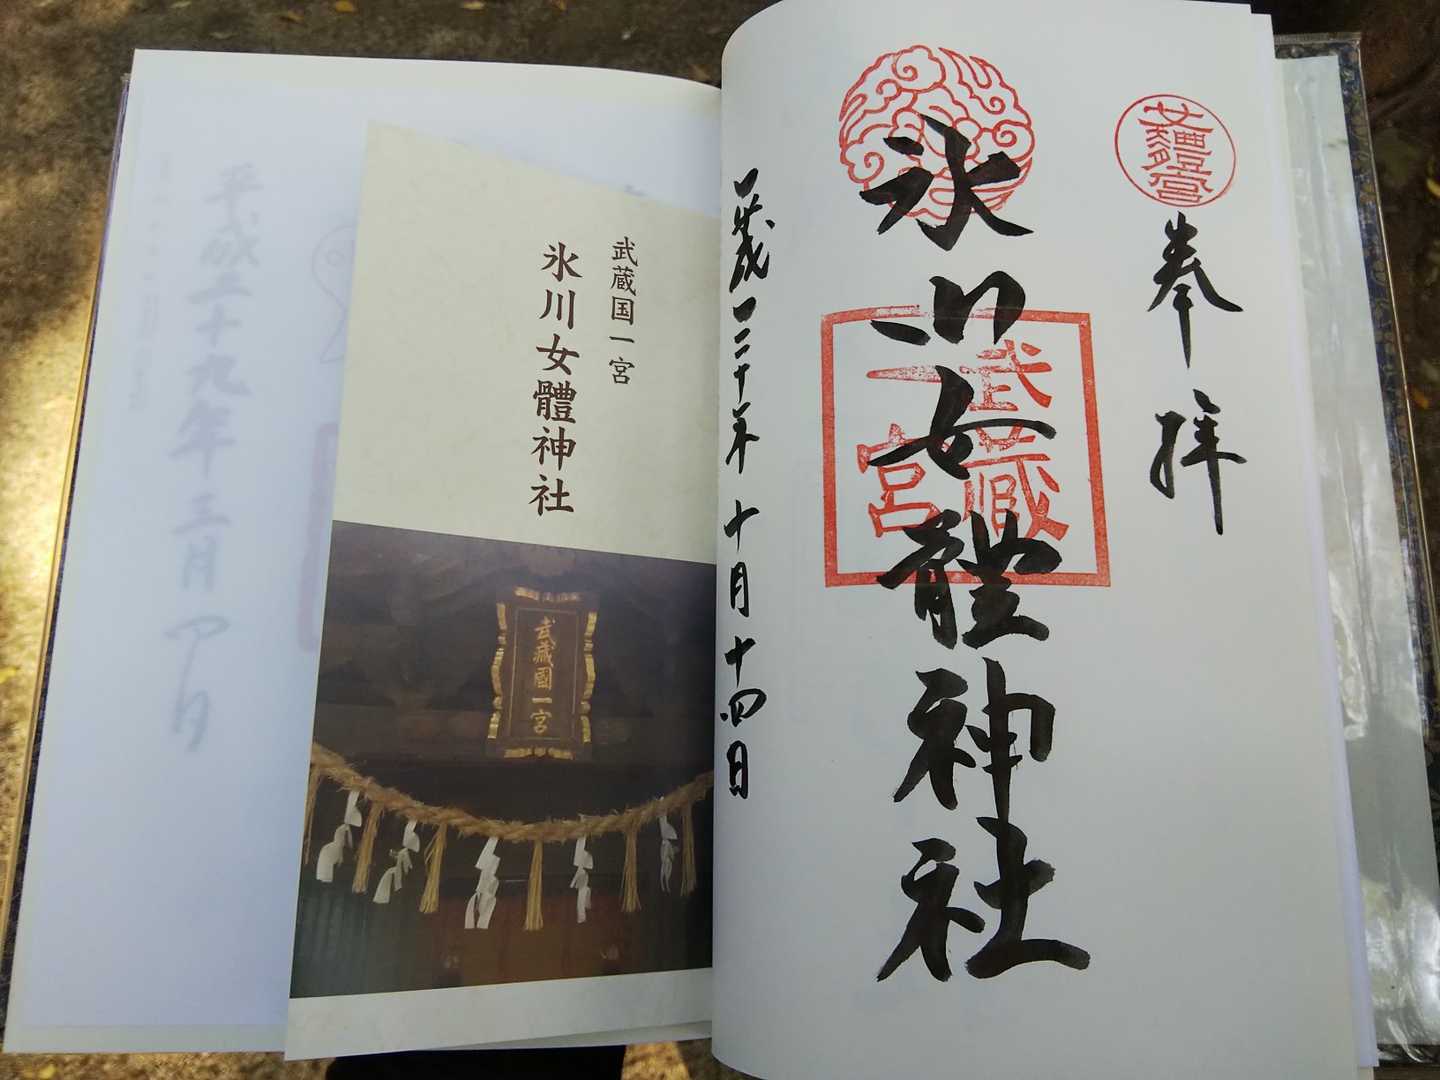 女體宮
奉拝
武蔵
一宮
氷川女體神社
平成三十年十月十四日
武蔵国一宮
氷川女體神社
武蔵國一宮
平成二十九年三月